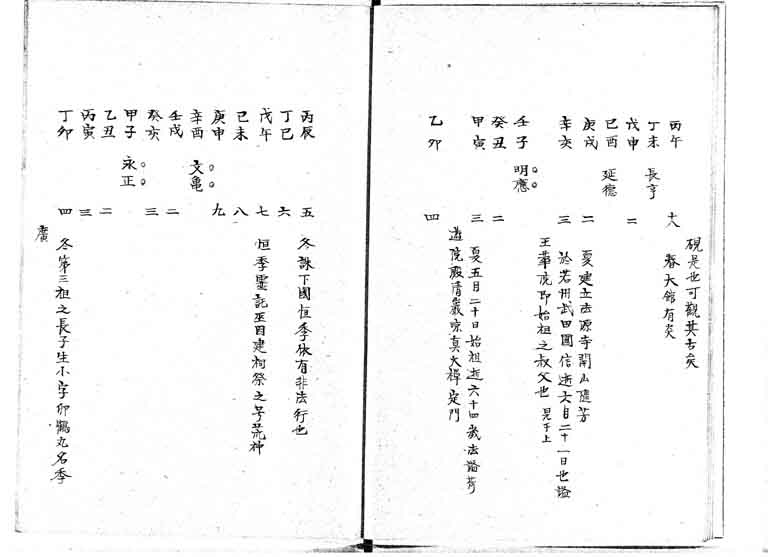 硯是也可觀其古矣
丙午 六 春大館有炎
丁未 長亨
戊申 二
己酉 延德
庚戌 二 夏建立法源寺開山隨芳
辛亥 三 於若州武田國信逝六月二十一日也謚
王華院即始祖之叔父也 見于上
壬子 明應
癸丑 二
甲寅 三 夏五月二十日始祖逝六十四歲法謚荷
遊院殿清巖凉真大禅定門
乙卯 四
丙辰 五 冬誅下國恒季依有非法行也
丁巳 六
戊午 七 恒季靈託巫因建祠祭之号荒神
己未 八
庚申 九
辛酉 文亀
壬戌 二
癸亥 三
甲子 永正
乙丑 二
丙寅 三
丁卯 四 冬第三祖之長子生小字卯鶴丸名季
廣